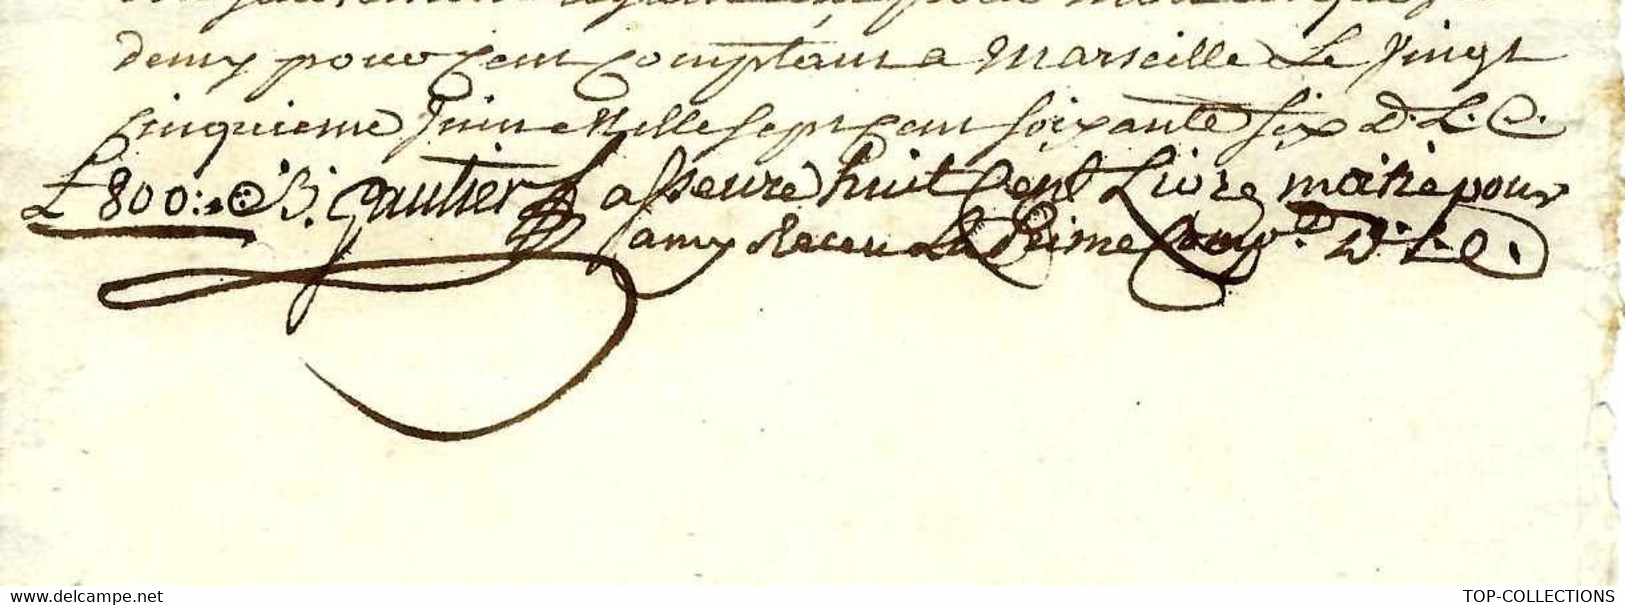 demy pour Cent Comptant a Marseille Le Vingt
Cinquieme Juin Mille sept cent soixante six D. L. C.
£ 800:. B. gautier asseure huit Cent Livre moitie pour
amy Receu La Prime Comp.d D. L. C.
Zoom
TOP-COLLECTIONS